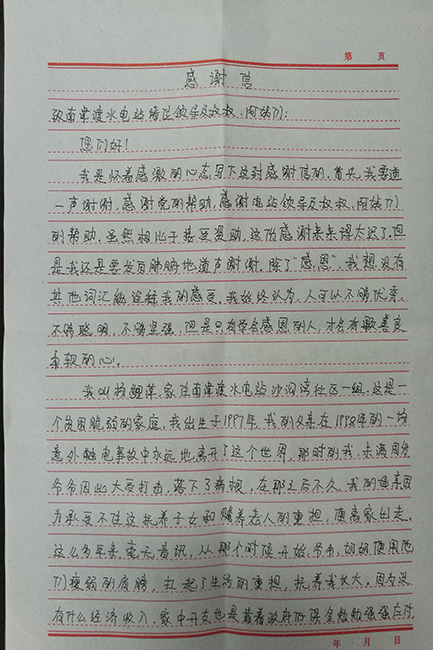 第 頁
感谢信
致南津渡水电站各位领导及叔叔、阿姨们:
您们好!
我是怀着感激的心态写下这封感谢信的,首先,我要道
一声谢谢,感谢党的帮助,感谢电站领导及叔叔、阿姨们
的帮助,虽然相比于接受援助,这份感谢来来得太迟了,但
是我还是要发自肺腑地道声谢谢,除了“感恩”,我想没有
其他词汇能诠释我的感受,我始终认为,人可以不够优秀,
不够聪明,不够坚强,但是只有学会感恩的人,才会有敬善良
柔软的心。
我叫 家住南津渡水电站沙洞湾社区一组,这是一
个贫困脆弱的家庭,我出生于1997年,我的父亲在1998年的一场
意外触电事故中永远地离开了这个世界,那时的我,未满周岁
爷爷因此大受打击,落下了病根,在那之后不久,我的母亲因
为承受不住这抚养子女和赡养老人的重担,便离家出走,
这么多年来,毫无音讯,从那个时候开始,爷爷、奶奶便用他
们瘦弱的肩膀,扛起了生活的重担,抚养我长大,因为没
有什么经济收入,家中开支也是靠着政府低保金勉勉强强应付
年 月 日